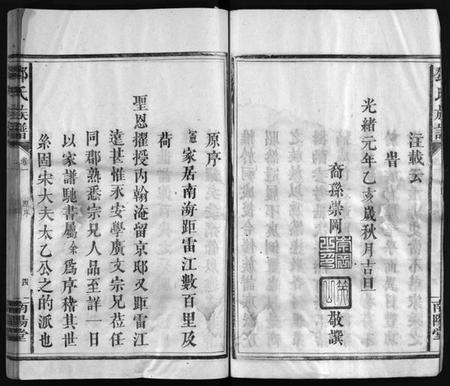 鄧氏族譜
注載云
旹
光緒元年乙亥歲秋月吉日
裔孫崇岡
敬譔
南陽堂
原序
家居南海距雷江數百里及
荷
聖恩擢授内翰淹留京邸又距雷江
遠甚惟永安學廣文宗兄蒞任
同郡熟悉宗兄人品至詳一日
以家譜馳書屬余為序稽其世
系固宋大夫太乙公之的派也
鄧氏族譜
卷一
原序
四
南陽堂